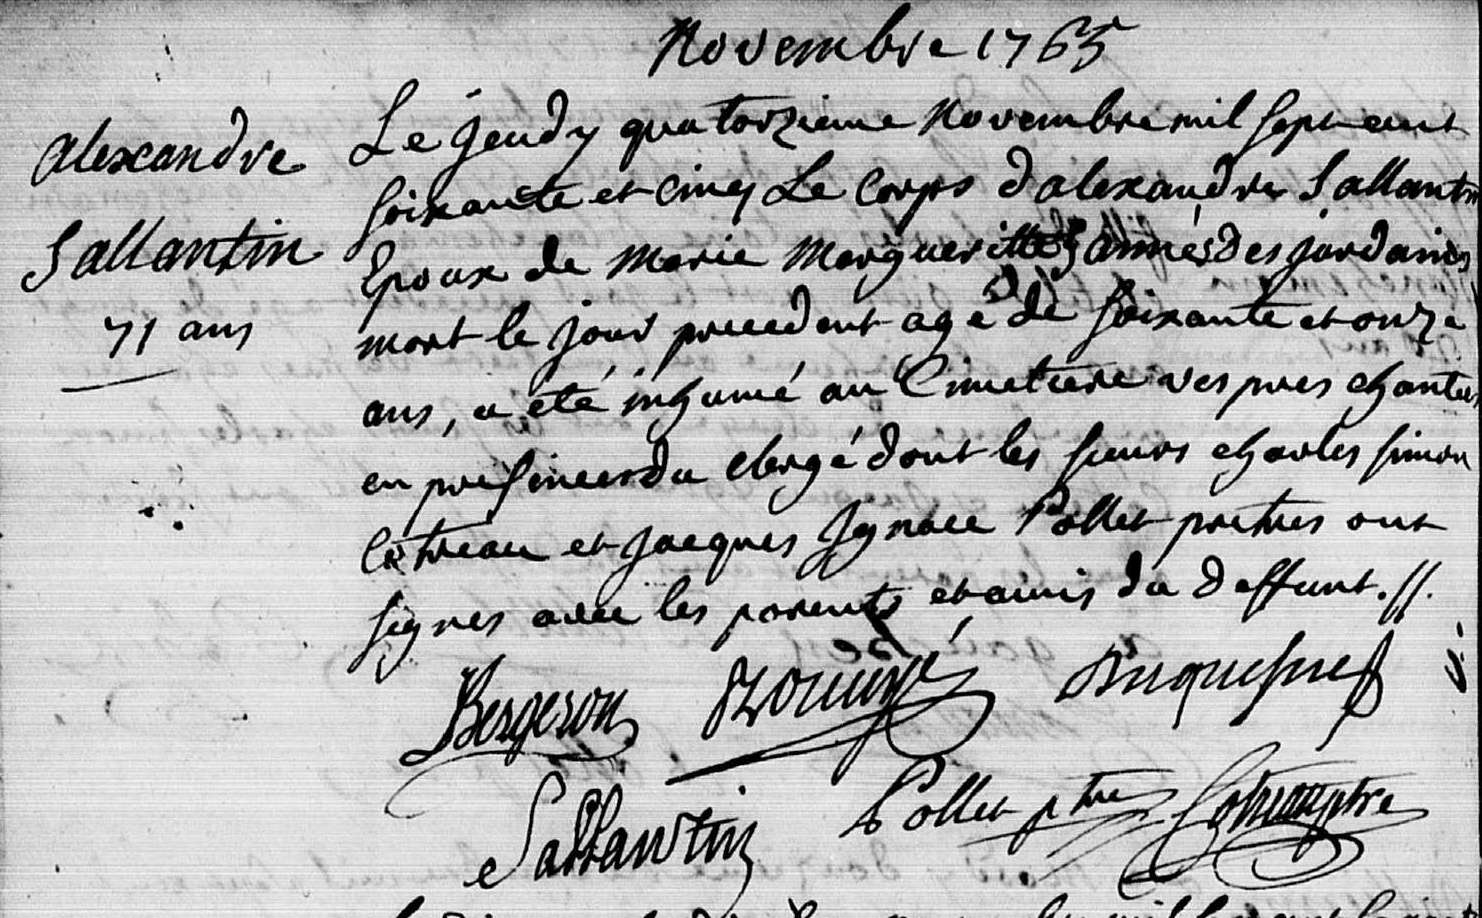 Novembre 1765
alexandre
Sallantin
71 ans
Le jeudy quatorzieme Novembre mil sept cent
soixante et cinq Le Corps d'alexandre Sallantin
Epoux de Marie Margueritte des jardains
mort le jour precedent agé de soixante et onze
ans, a été inhumé au Cimetiere vespres chantés
en presence du clergé dont les sieurs charles simon
Cotreau et jacques jgnace Pollet pretres ont
signes avec les parents et amis du deffunt .//.
Bergeron Duquesne
Sallantin Pollet ptre Cotreau ptre